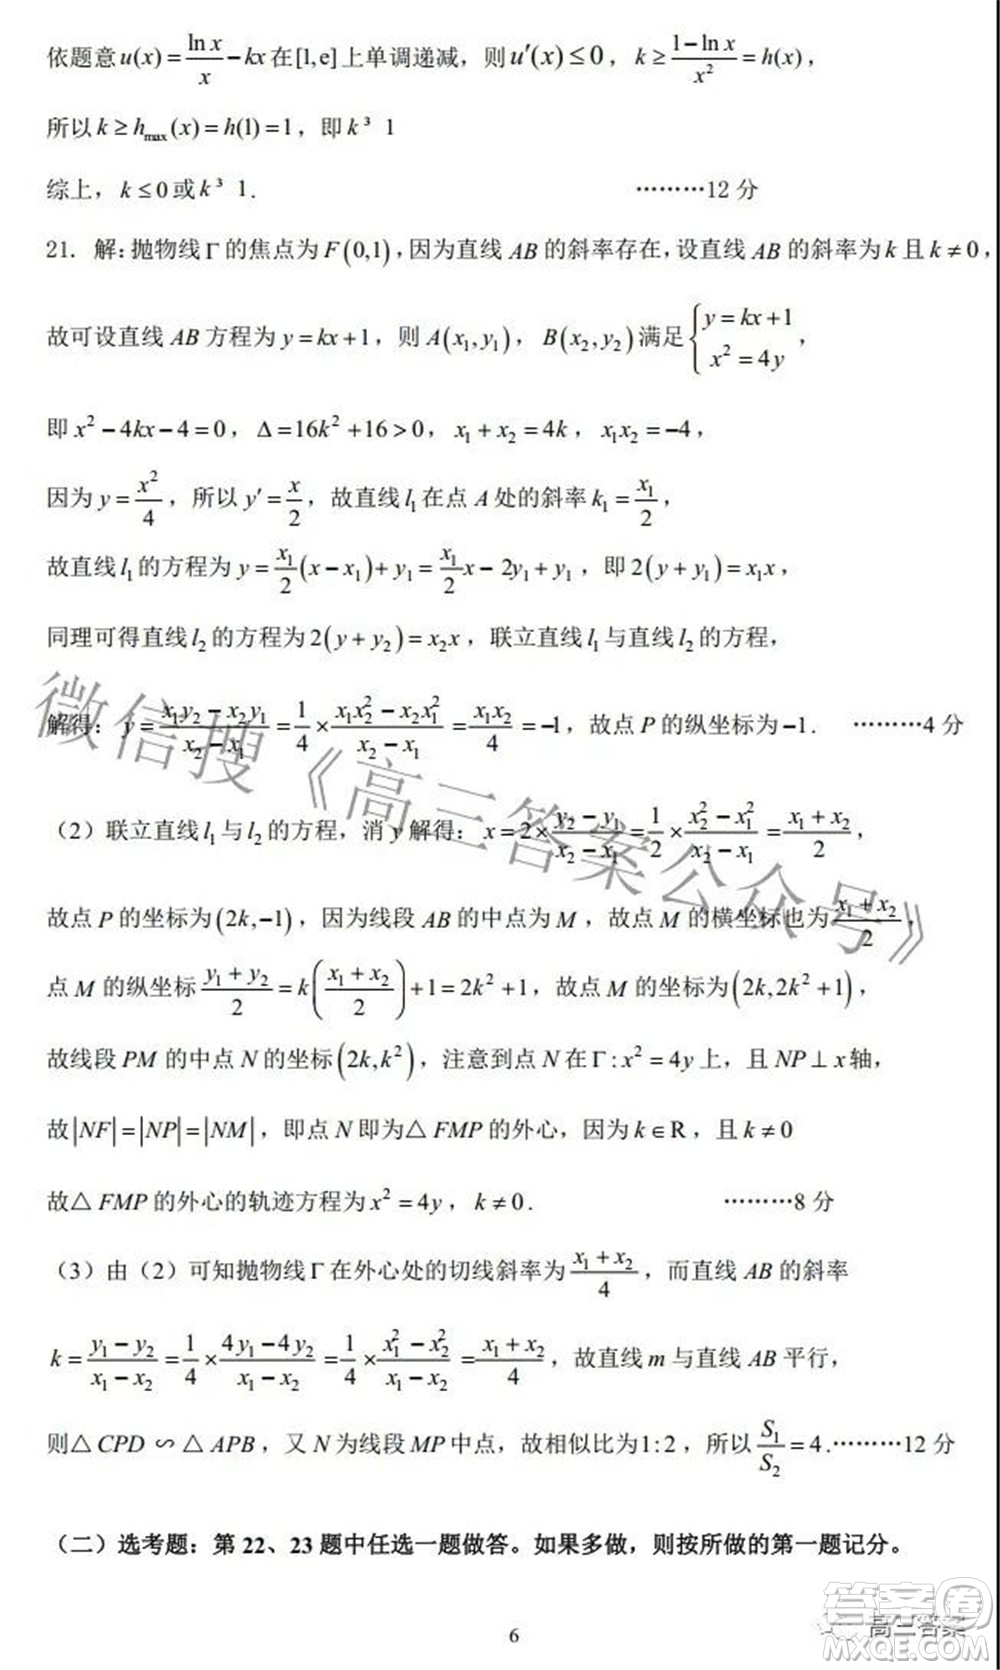 依题意 u(x) = ln x / x − kx 在 [1,e] 上单调递减，则 u′(x) ≤ 0， k ≥ (1−ln x)/x² = h(x)，
所以 k ≥ hmax(x) = h(1) = 1，即 k ³ 1
综上，k ≤ 0 或 k ³ 1． ………12 分
21． 解：抛物线 Γ 的焦点为 F(0,1)，因为直线 AB 的斜率存在，设直线 AB 的斜率为 k 且 k ≠ 0，
故可设直线 AB 方程为 y = kx + 1，则 A(x₁, y₁)， B(x₂, y₂) 满足 { y = kx + 1, x² = 4y ，
即 x² − 4kx − 4 = 0， Δ = 16k² + 16 > 0， x₁ + x₂ = 4k， x₁x₂ = −4，
因为 y = x²/4，所以 y′ = x/2，故直线 l₁ 在点 A 处的斜率 k₁ = x₁/2，
故直线 l₁ 的方程为 y = x₁/2 (x − x₁) + y₁ = x₁/2 x − 2y₁ + y₁，即 2(y + y₁) = x₁x，
同理可得直线 l₂ 的方程为 2(y + y₂) = x₂x，联立直线 l₁ 与直线 l₂ 的方程，
解得：y = (x₁y₂ − x₂y₁)/(x₂ − x₁) = 1/4 × (x₁x₂² − x₂x₁²)/(x₂ − x₁) = x₁x₂/4 = −1，故点 P 的纵坐标为 −1． ………4 分
（2）联立直线 l₁ 与 l₂ 的方程，消 y 解得：x = 2 × (y₂ − y₁)/(x₂ − x₁) = 1/2 × (x₂² − x₁²)/(x₂ − x₁) = (x₁ + x₂)/2，
故点 P 的坐标为 (2k, −1)，因为线段 AB 的中点为 M，故点 M 的横坐标也为 (x₁ + x₂)/2，
点 M 的纵坐标 (y₁ + y₂)/2 = k((x₁ + x₂)/2) + 1 = 2k² + 1，故点 M 的坐标为 (2k, 2k² + 1)，
故线段 PM 的中点 N 的坐标 (2k, k²)，注意到点 N 在 Γ : x² = 4y 上，且 NP ⊥ x 轴，
故 |NF| = |NP| = |NM|，即点 N 即为△ FMP 的外心，因为 k ∈ R，且 k ≠ 0
故△ FMP 的外心的轨迹方程为 x² = 4y， k ≠ 0． ………8 分
（3）由（2）可知抛物线 Γ 在外心处的切线斜率为 (x₁ + x₂)/4，而直线 AB 的斜率
k = (y₁ − y₂)/(x₁ − x₂) = 1/4 × (4y₁ − 4y₂)/(x₁ − x₂) = 1/4 × (x₁² − x₂²)/(x₁ − x₂) = (x₁ + x₂)/4，故直线 m 与直线 AB 平行，
则△ CPD ∽ △ APB，又 N 为线段 MP 中点，故相似比为 1 : 2，所以 S₁/S₂ = 4．………12 分
（二）选考题：第 22、23 题中任选一题做答。如果多做，则按所做的第一题记分。
6
微信搜《高三答案公众号》
高三答案
答案圈
MXQE.COM